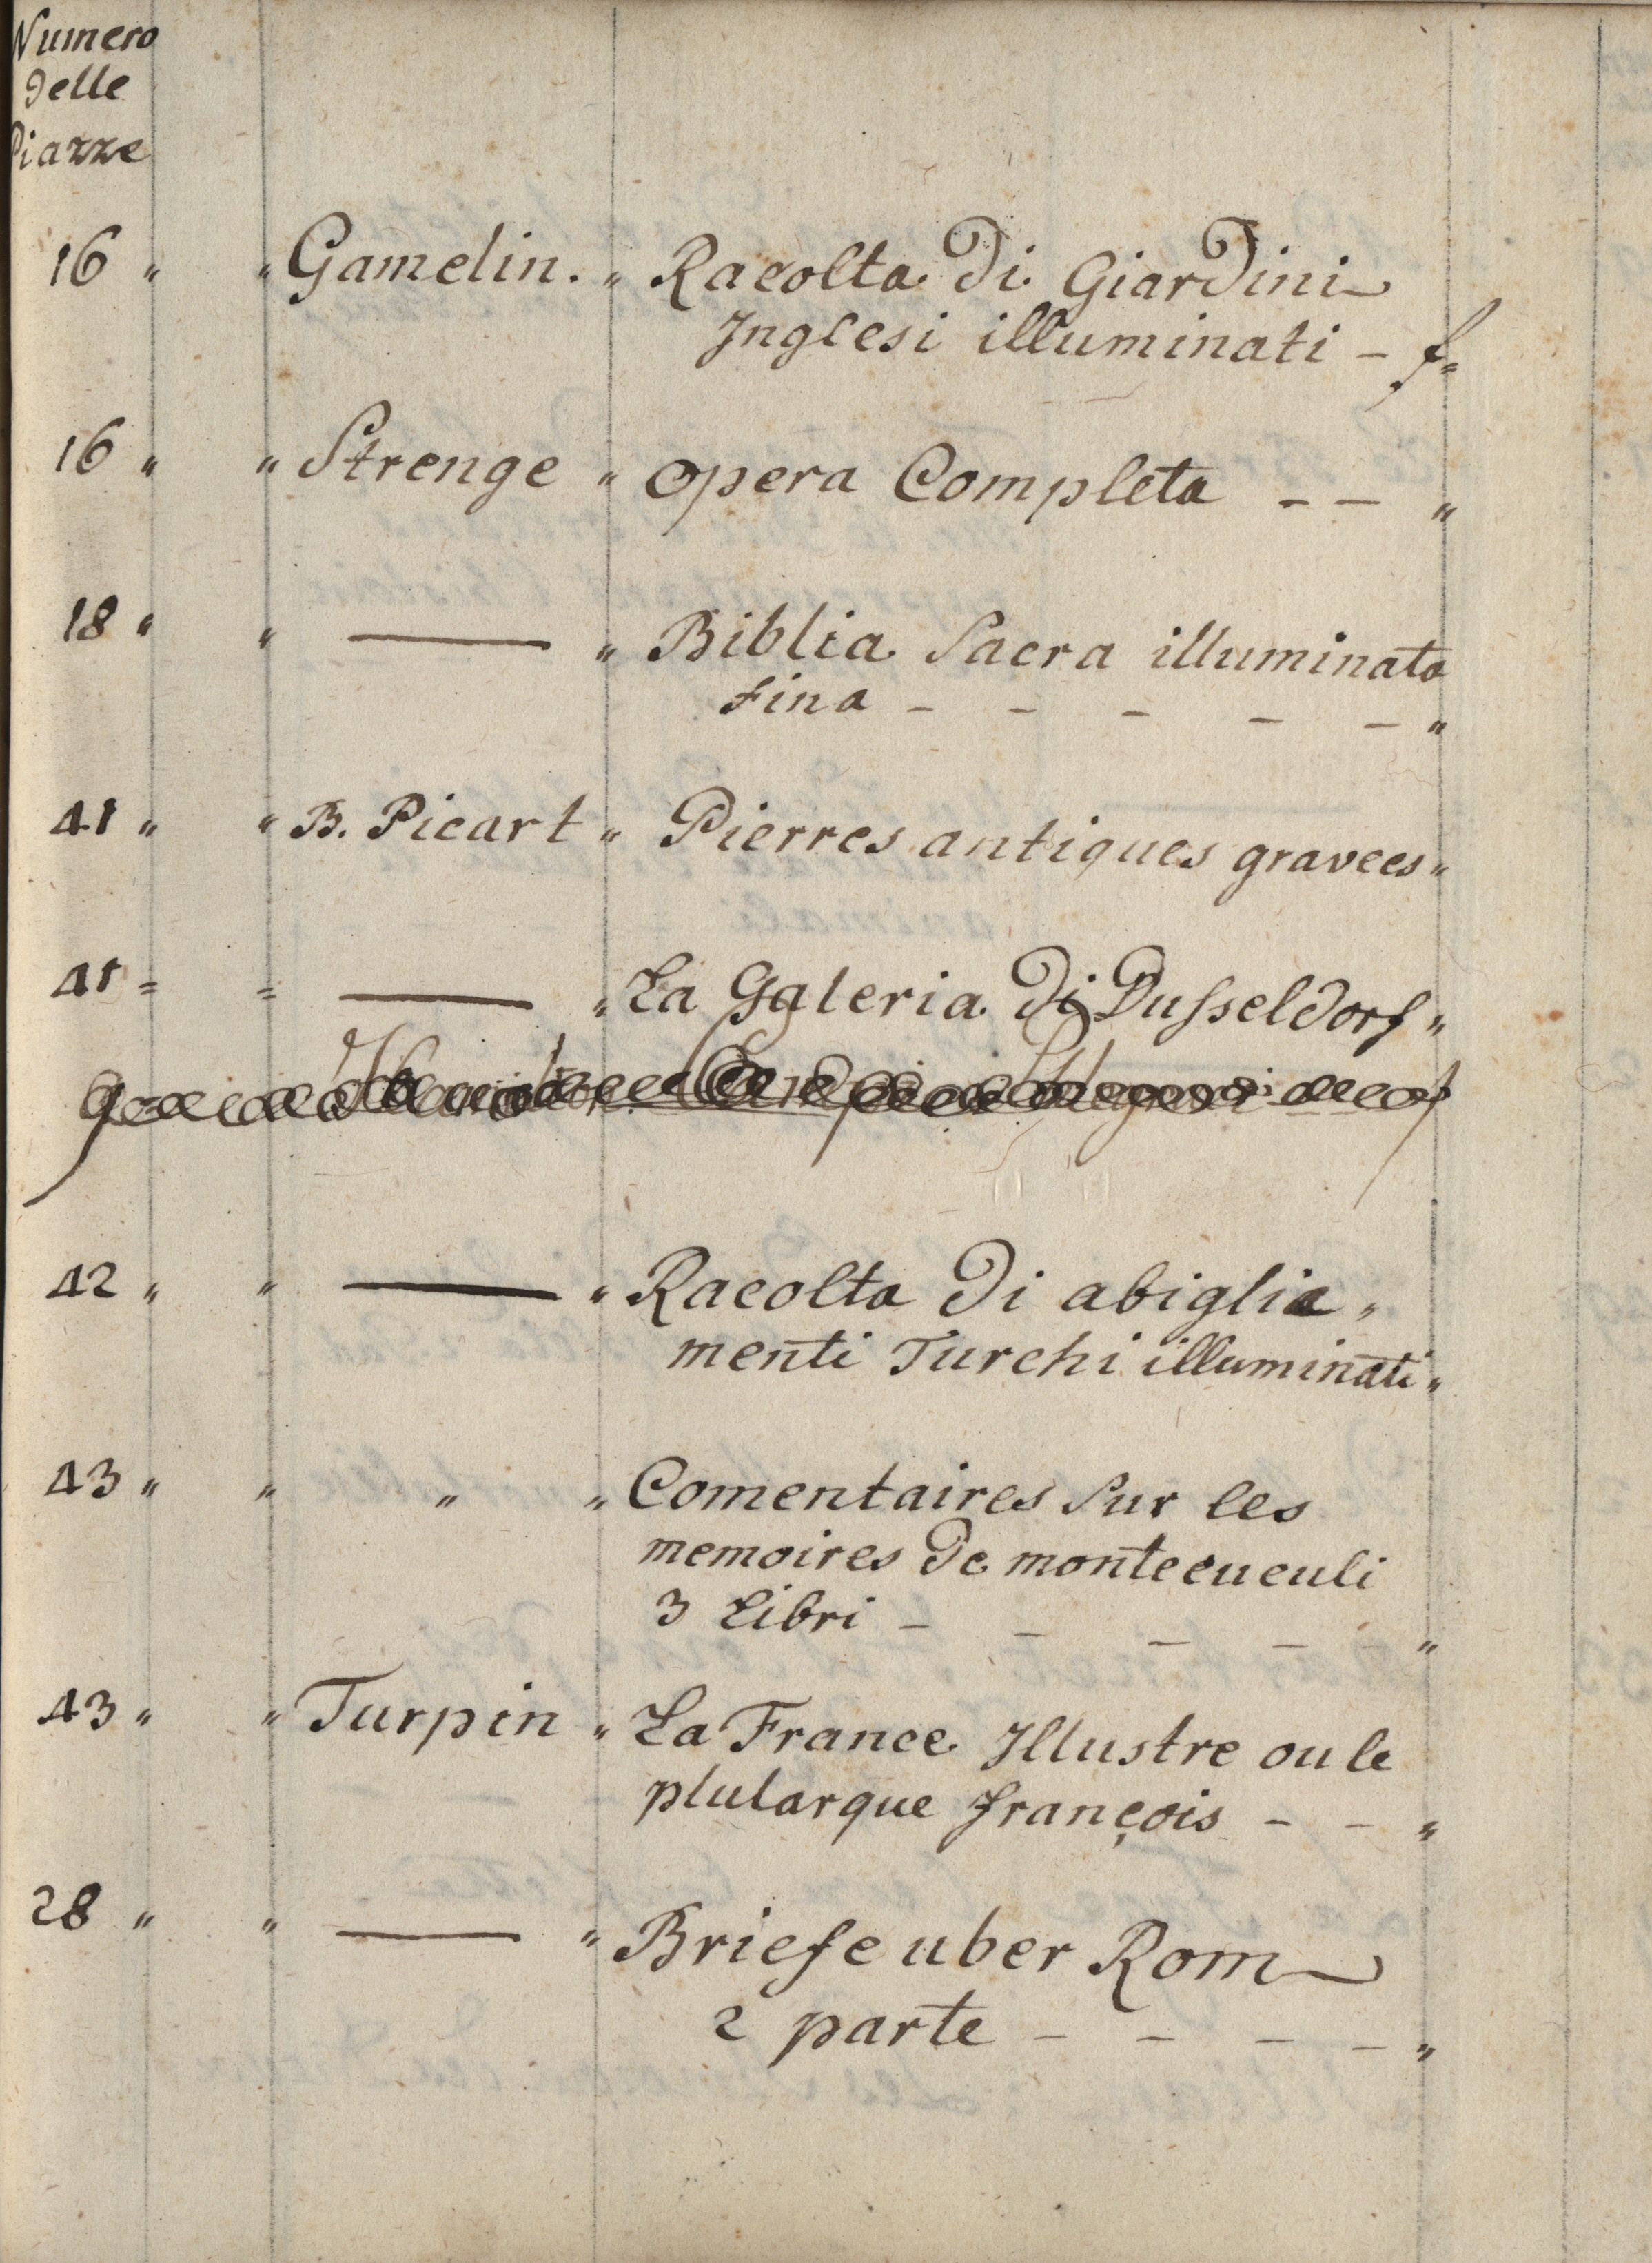 Numero
delle
Piazze
16 " " Gamelin. " Racolta di Giardini
Inglesi illuminati – f="
16 " " Strenge " opera Completa – – "
18 " " — " Biblia Sacra illuminata
fina – – – – – "
41 " " B. Picart " Pierres antiques gravees "
41 = = — " La Galeria di Dusseldorf "
42 " " — " Racolta di abiglia "
menti Turchi illuminati "
43 " " " " Comentaires Sur les
memoires de montecuculi
3 Libri – – – – "
43 " " Turpin " La France Illustre ou le
plutarque françois – – "
28 " " — " Briefe uber Rom
2 parte – – – – "